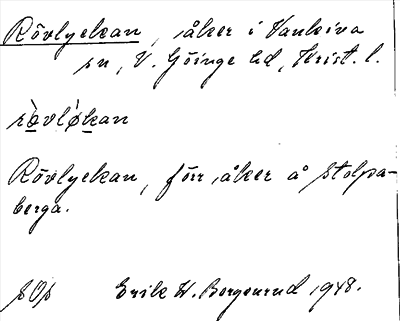 Rövlyckan, åker i Vankiva
sn, V. Göinge hd, Krist. l.
rö̀vlǿkan
Rövlyckan, förr åker å Stolpa-
berga.
Erik W. Bergenrud 1948.